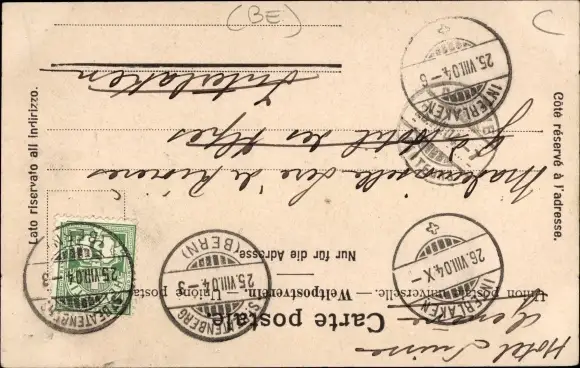 Carte postale
Union postale universelle. — Weltpostverein. — Unione postale
Nur für die Adresse
Côté réservé à l'adresse.
Lato riservato all indirizzo.
Mademoiselle
des Alpes
Interlaken
Hotel Suisse
(BE)
C
(BERN)
25.VIII.04-3
(BERN)
25.VIII.04-3
INTERLAKEN
25.VIII.04-6
INTERLAKEN
26.VIII.04.X-